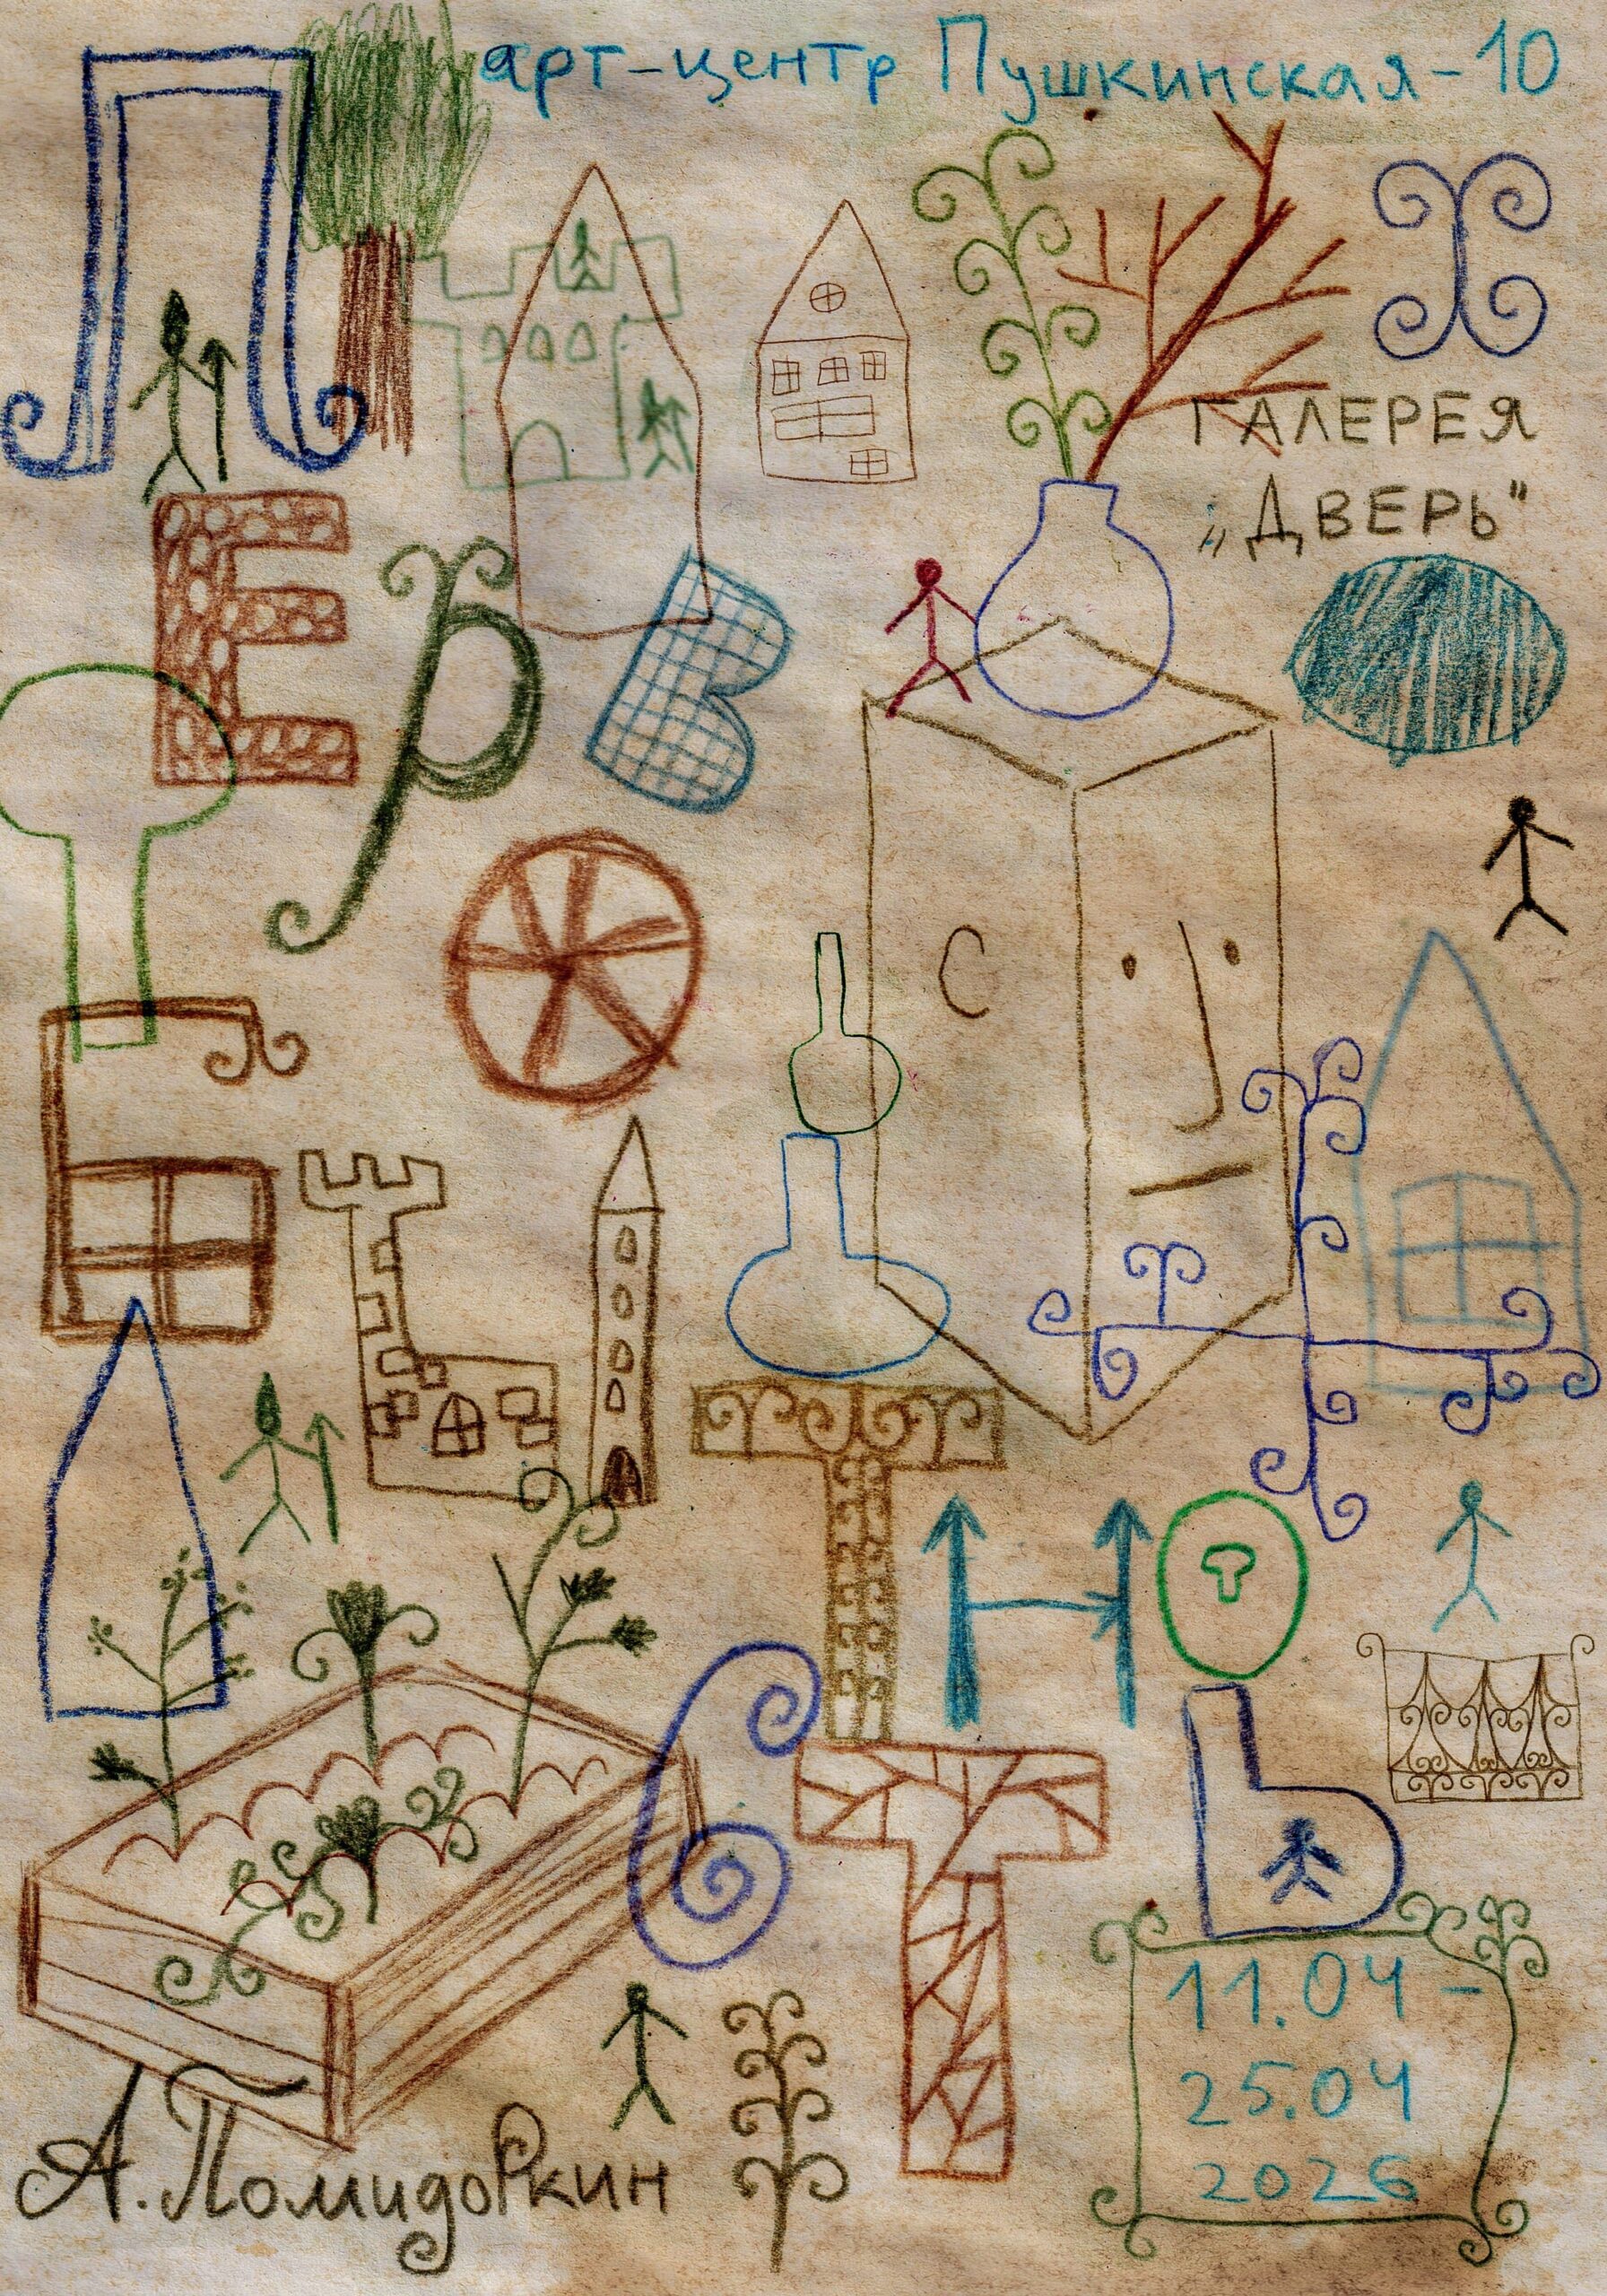 арт-центр Пушкинская-10
ГАЛЕРЕЯ
„ДВЕРЬ"
ПЕРВОБЫТНОСТЬ
11.04-
25.04
2026
А. Помидоркин